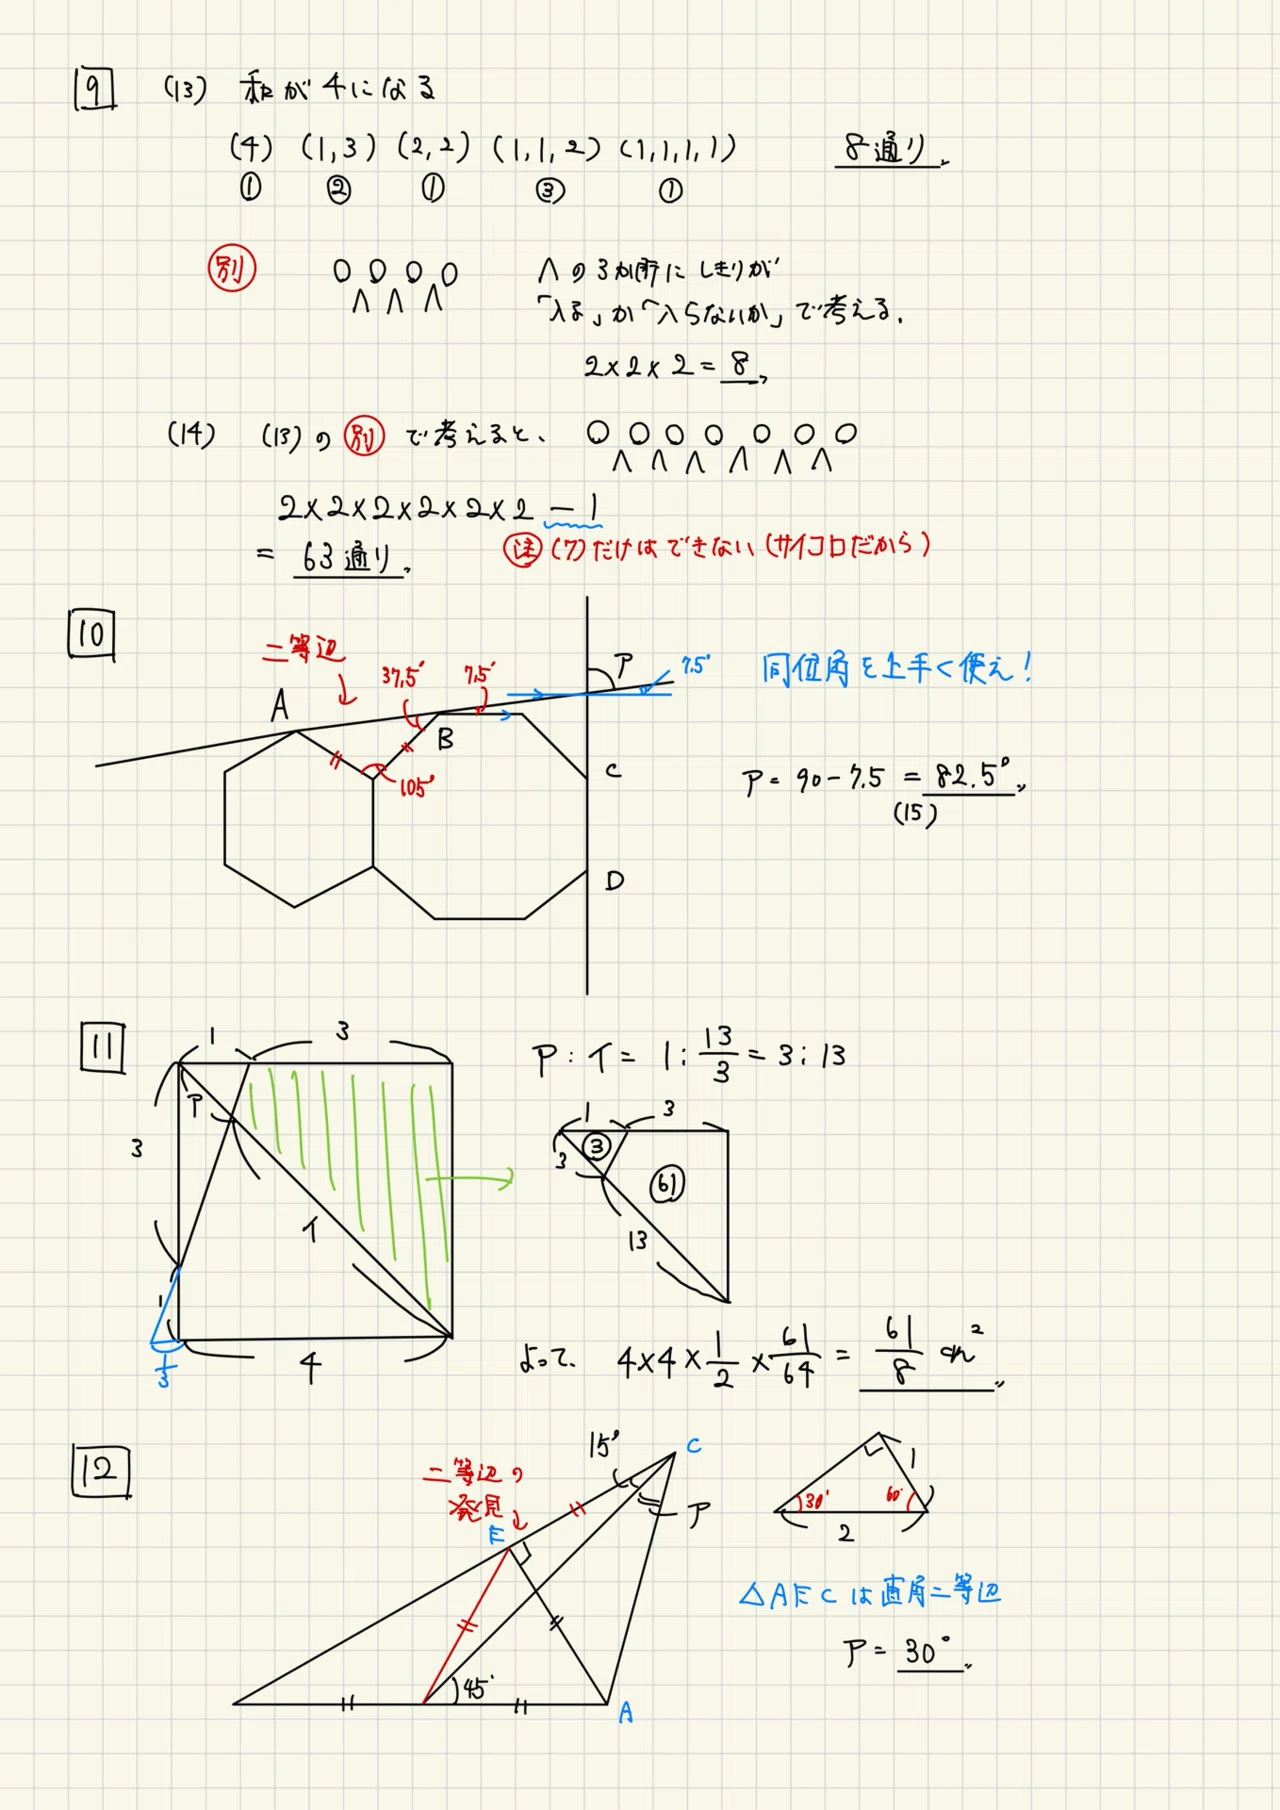 9 (13) 和が4になる
(4) (1,3) (2,2) (1,1,2) (1,1,1,1) 8通り
① ② ① ③ ①
別 ∧の3か所にしきりが
「入る」か「入らないか」で考える.
2×2×2=8
(14) (13)の別で考えると、
2×2×2×2×2×2-1
= 63通り 注(7)だけはできない(サイコロだから)
10
二等辺 37.5° 7.5° ア 7.5° 同位角を上手く使え!
A
B
C
105°
ア=90-7.5=82.5°
(15)
D
11 1 3
ア:イ=1:13/3=3:13
ア
3
1 3
3 ③
61
13
イ
1
1/3
4
よって、 4×4×1/2×61/64=61/8 cm²
12
15° C
二等辺の
発見
E
ア
1
30° 60°
2
△AECは直角二等辺
ア=30°
45°
A